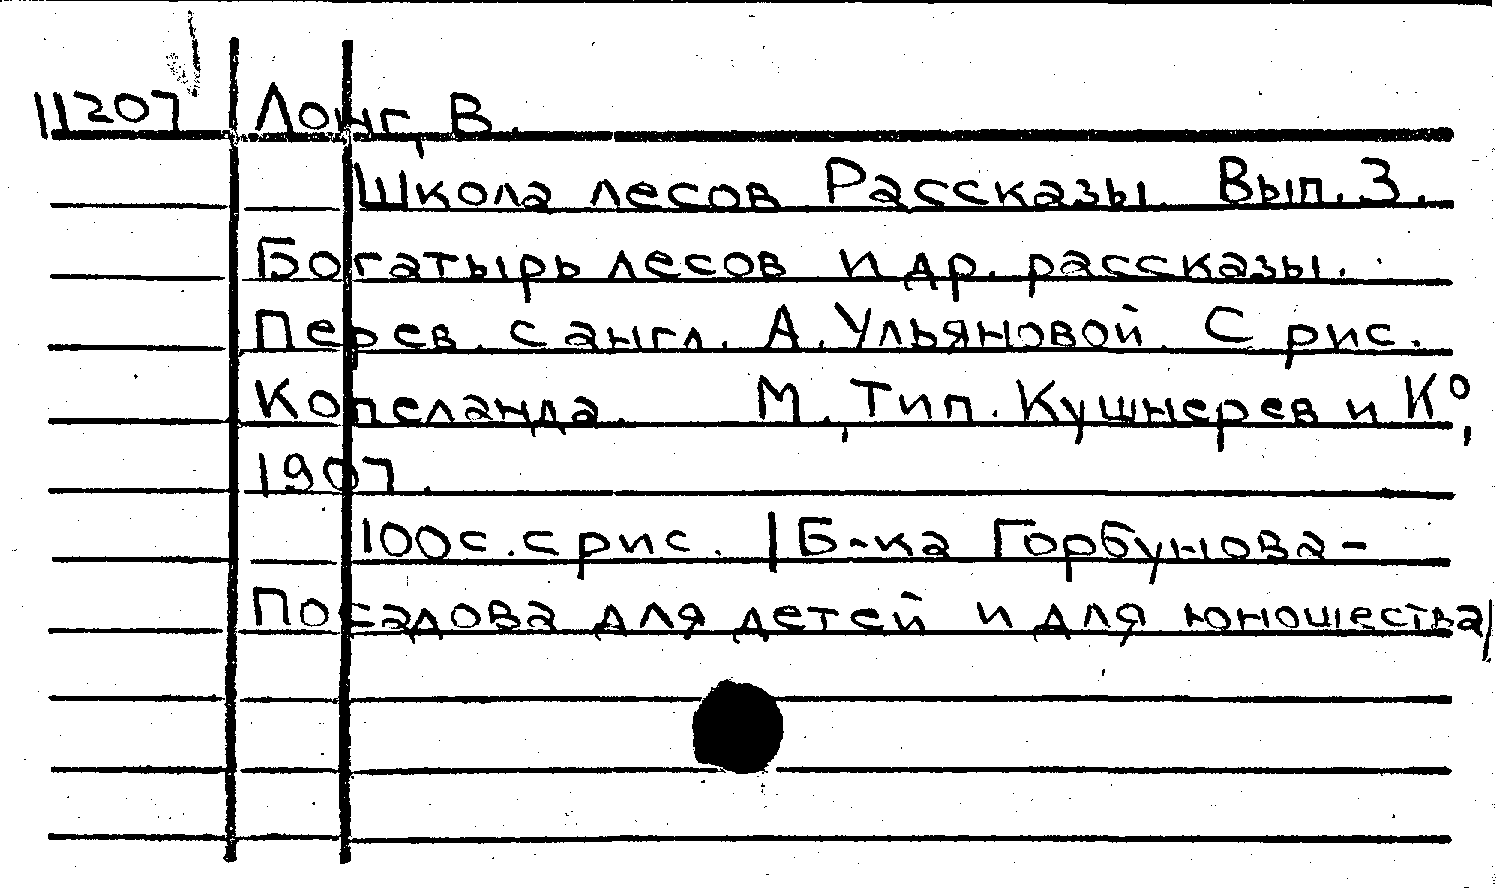 11207 Лонг, В.
Школа лесов Рассказы. Вып. 3.
Богатырь лесов и др. рассказы.
Перев. с англ. А. Ульяновой. С рис.
Копеланда. М., Тип. Кушнерев и К°,
1907.
100с. с рис. |Б-ка Горбунова-
Посадова для детей и для юношества|